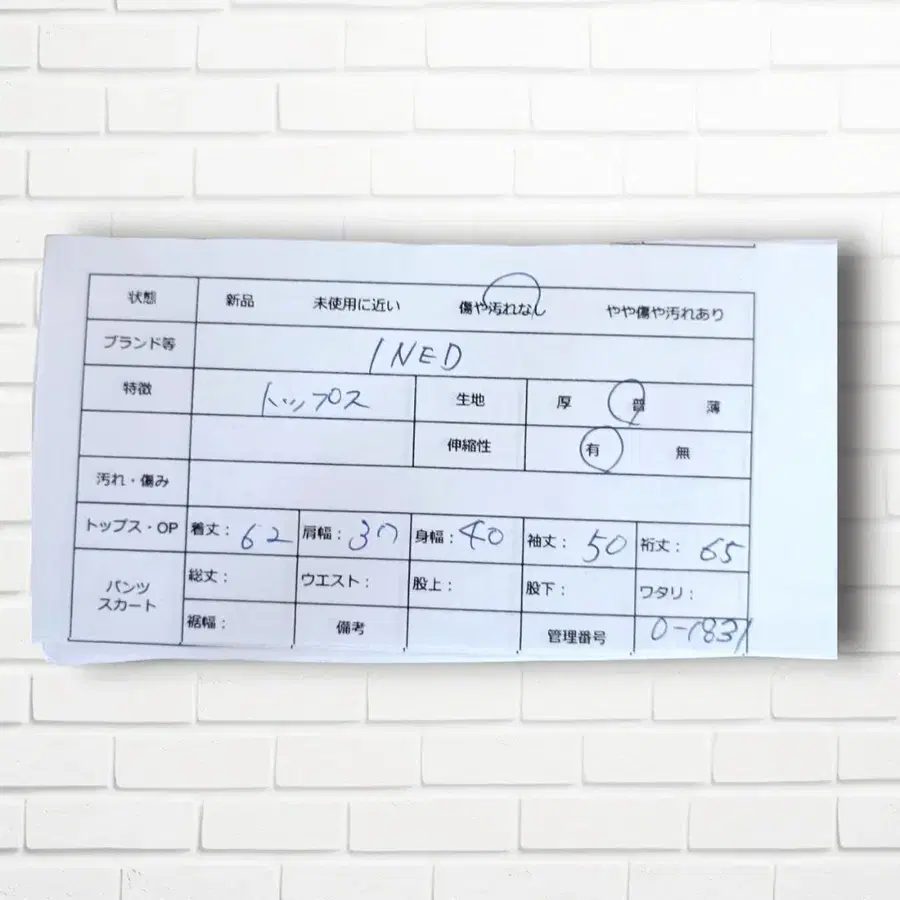 状態 新品 未使用に近い 傷や汚れなし やや傷や汚れあり
ブランド等 INED
特徴 トップス 生地 厚 普 薄
伸縮性 有 無
汚れ・傷み
トップス・OP 着丈: 62 肩幅: 37 身幅: 40 袖丈: 50 裄丈: 65
パンツ スカート 総丈: ウエスト: 股上: 股下: ワタリ:
裾幅: 備考 管理番号 0-1831